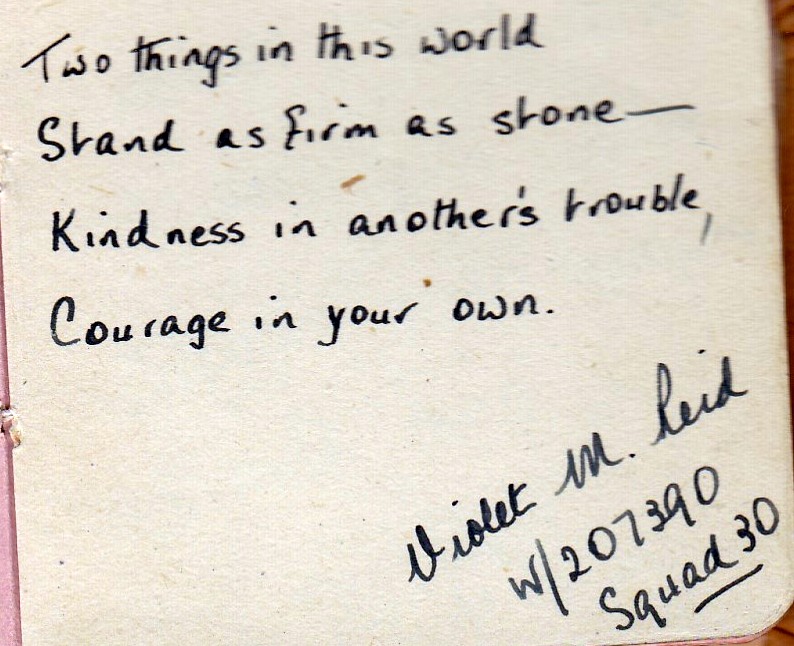 Two things in this world
Stand as firm as stone—
Kindness in another's trouble,
Courage in your own.
Violet M. Reid
W/207390
Squad 30